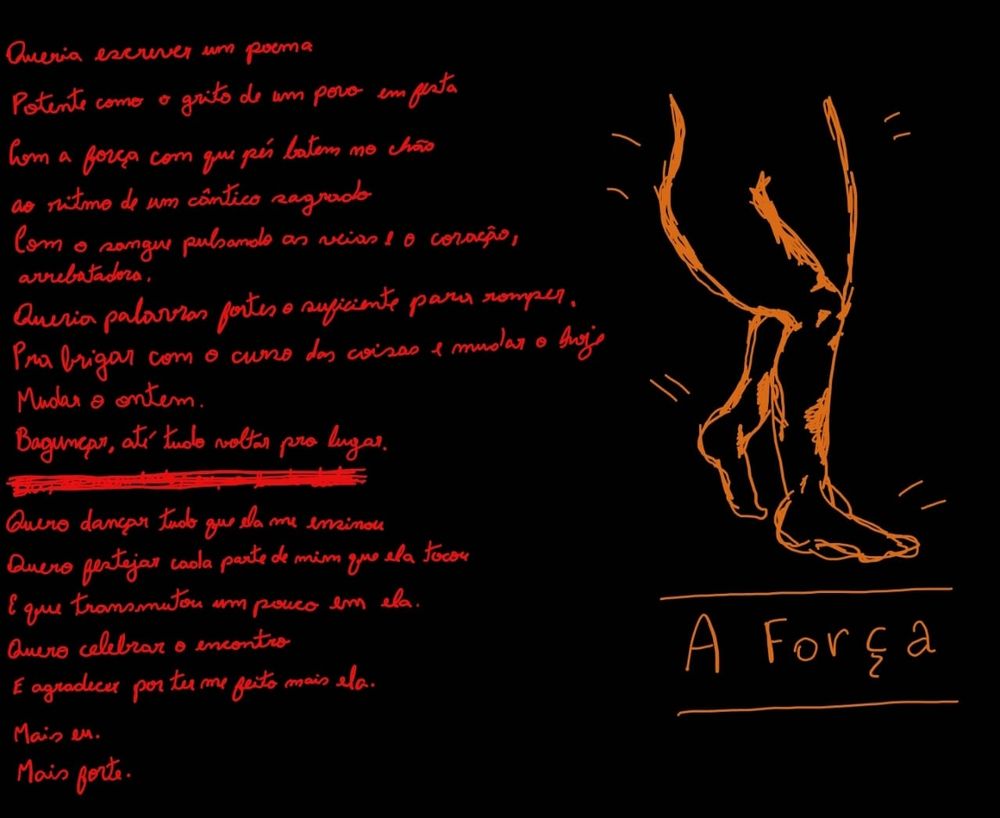 Queria escrever um poema
Potente como o grito de um povo em festa
Com a força com que pés batem no chão
ao ritmo de um cântico sagrado
Com o sangue pulsando as veias e o coração,
arrebatadora.
Queria palavras fortes o suficiente para romper.
Pra brigar com o curso das coisas e mudar o hoje
Mudar o ontem.
Bagunçar, até tudo voltar pro lugar.
Quero dançar tudo que ela me ensinou
Quero festejar cada parte de mim que ela tocou
E que transmutou um pouco em ela.
Quero celebrar o encontro
E agradecer por ter me feito mais ela.
Mais eu.
Mais forte.
A Força